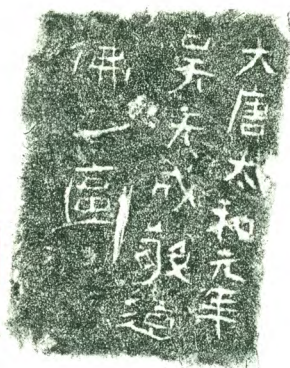 大唐太和元年
吴天成敬造
佛一